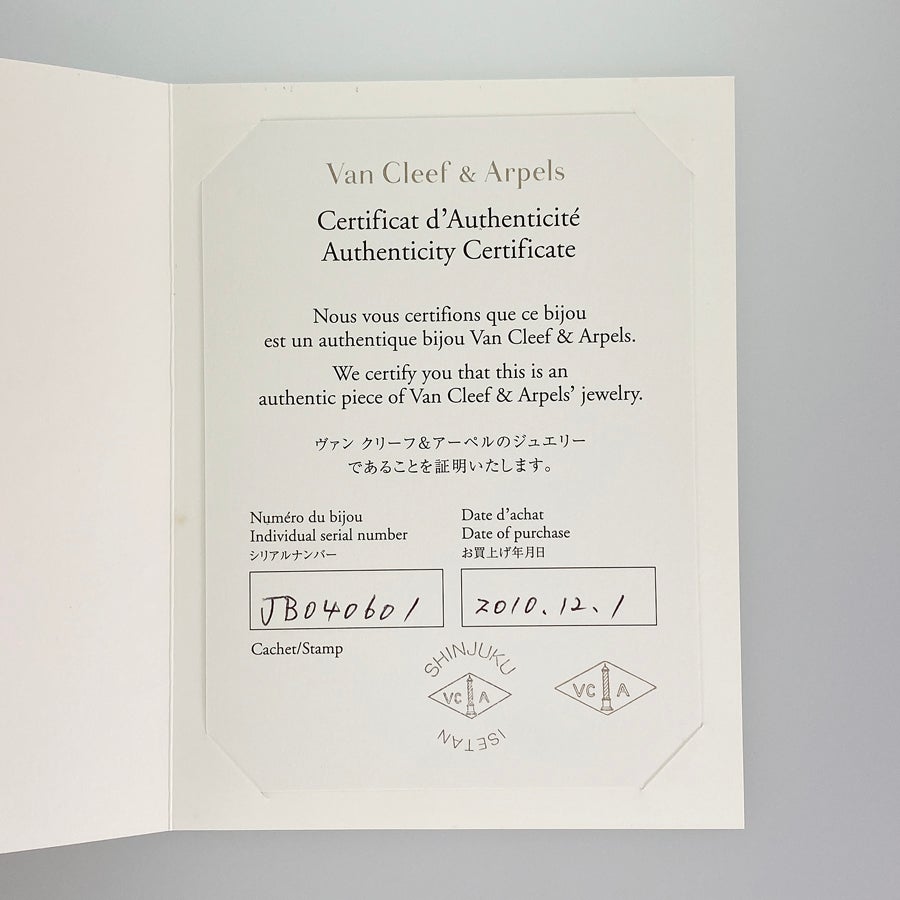 Van Cleef & Arpels
Certificat d'Authenticité
Authenticity Certificate
Nous vous certifions que ce bijou
est un authentique bijou Van Cleef & Arpels.
We certify you that this is an
authentic piece of Van Cleef & Arpels' jewelry.
ヴァン クリーフ&アーペルのジュエリー
であることを証明いたします。
Numéro du bijou
Individual serial number
シリアルナンバー
JB040601
Date d'achat
Date of purchase
お買上げ年月日
2010.12.1
Cachet/Stamp
SHINJUKU
VC A
ISETAN
VC A